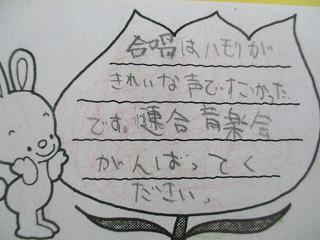 合唱は、ハモリが
きれいな声ですごかった
です。連合音楽会
がんばってく
ださい。